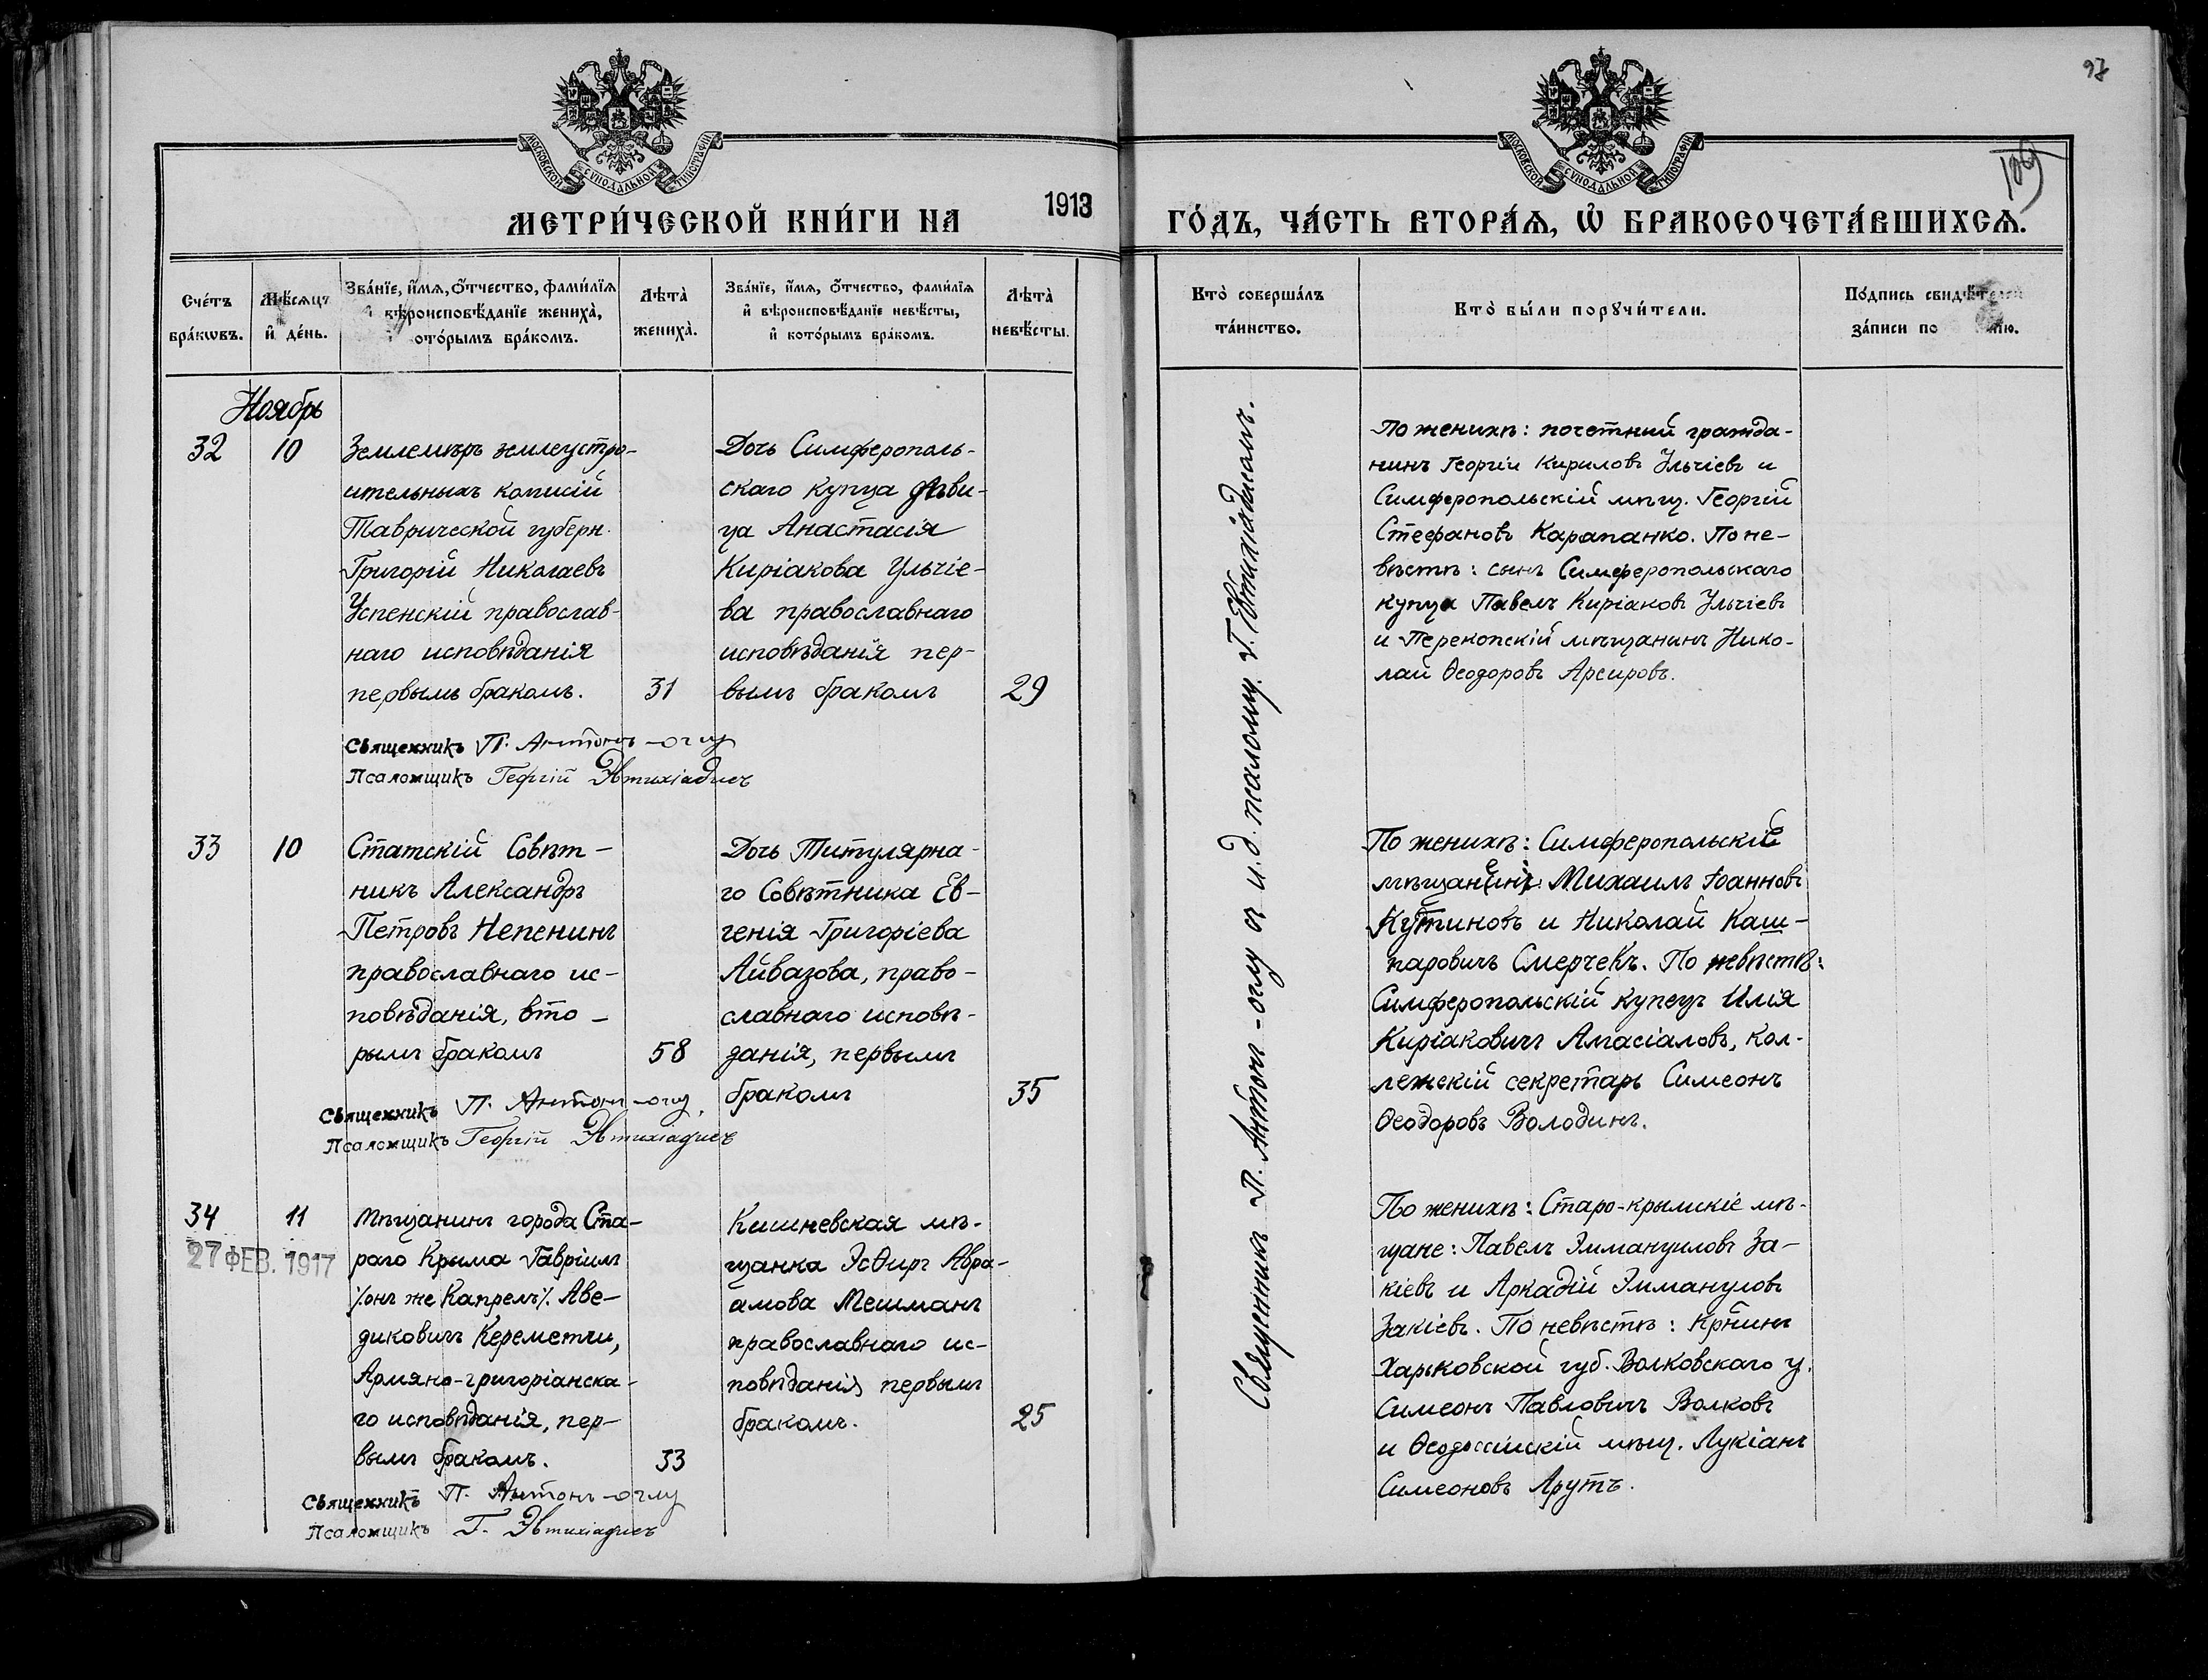 97
МОСКОВСКОЙ СУНОДАЛЬНОЙ ТИПОГРАФІИ
МОСКОВСКОЙ СУНОДАЛЬНОЙ ТИПОГРАФІИ
МЕТРИ́ЧЕСКОЙ КНИ́ГИ НА 1913
ГО́ДЪ, ЧА́СТЬ ВТОРА́Я, Ѡ҆ БРАКОСОЧЕТА́ВШИХСЯ.
Сче́тъ
бра́кѡвъ.
Мѣ́сяцъ
и҆ де́нь.
Зва́нїе, и҆́мя, ѻ҆́тчество, фами́лїя
вѣроисповѣ́данїе жениха̀,
кото́рымъ бра́комъ.
Лѣта̀
жениха̀.
Зва́нїе, и҆́мя, ѻ҆́тчество, фами́лїя
и҆ вѣроисповѣ́данїе невѣ́сты,
и҆ кото́рымъ бра́комъ.
Лѣта̀
невѣ́сты.
Кто̀ соверша́лъ
та́инство.
Кто̀ бы́ли порꙋчи́тели.
По́дпись свидѣ́телей
за́писи по
Ноябрь
32
10
Землемѣръ землеустро-
ительныхъ комисій
Таврической губерн.
Григорій Николаевъ
Успенскій православ-
наго исповѣданія
первымъ бракомъ.
31
Дочь Симферополь-
скаго купца дѣви-
ца Анастасія
Киріакова Ульчіе-
ва православнаго
исповѣданія пер-
вымъ бракомъ
29
Священникъ П. Антонъ-оглу
Псаломщикъ Георгій Эвтихіадисъ
По женихѣ: почетный гражда-
нинъ Георгій Кириловъ Ульчіевъ и
Симферопольскій мѣщ. Георгій
Стефановъ Карапанко. По не-
вѣстѣ: сынъ Симферопольскаго
купца Павелъ Киріаковъ Ульчіевъ
и Перекопскій мѣщанинъ Нико-
лай Ѳеодоровъ Арсировъ.
33
10
Статскій Совѣт-
никъ Александръ
Петровъ Непенинъ
православнаго ис-
повѣданія, вто-
рымъ бракомъ
58
Дочь Титулярна-
го Совѣтника Ев-
генія Григоріева
Айвазова, право-
славнаго исповѣ-
данія, первымъ
бракомъ
35
Священникъ П. Антонъ-оглу
Псаломщикъ Георгій Эвтихіадисъ
По женихѣ: Симферопольскіе
мѣщане: Михаилъ Іоанновъ
Кутиновъ и Николай Каш-
паровичъ Смерчекъ. По невѣстѣ:
Симферопольскій купецъ Илія
Киріаковичъ Амасіаловъ, кол-
лежскій секретарь Симеонъ
Ѳеодоровъ Володинъ.
34
11
27 ФЕВ. 1917
Мѣщанинъ города Ста-
раго Крыма Гавріилъ
/онъ же Капрелъ/ Аве-
диковичъ Кереметчи,
Армяно-григоріанска-
го исповѣданія, пер-
вымъ бракомъ.
33
Кишневская мѣ-
щанка Эсѳирь Авра-
амова Мешманъ
православнаго ис-
повѣданія первымъ
бракомъ.
25
Священникъ П. Антонъ-оглу
Псаломщикъ Г. Эвтихіадисъ
По женихѣ: Старо-крымскіе мѣ-
щане: Павелъ Эммануиловъ За-
кіевъ и Аркадій Эммануловъ
Закіевъ. По невѣстѣ: Крнинъ
Харьковской губ. Волковскаго у.
Симеонъ Павловичъ Волковъ
и Ѳеодосійскій мѣщ. Лукіанъ
Симеоновъ Арутъ.
Священникъ П. Антонъ-оглу съ и.д. псаломщ. Г. Эвтихіадисомъ.